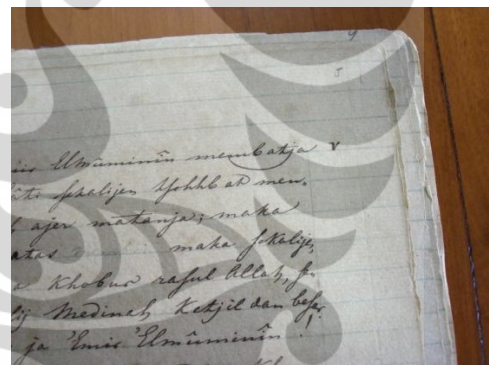 9
5
Elmûminîn membatja v
sekalijen tjohhbat men„
ajer matanja; maka
atas maka sekalije„
Khobur rasul Allah, se
Medinah ketjil dan besar
ja 'Emir 'Elmûminîn!